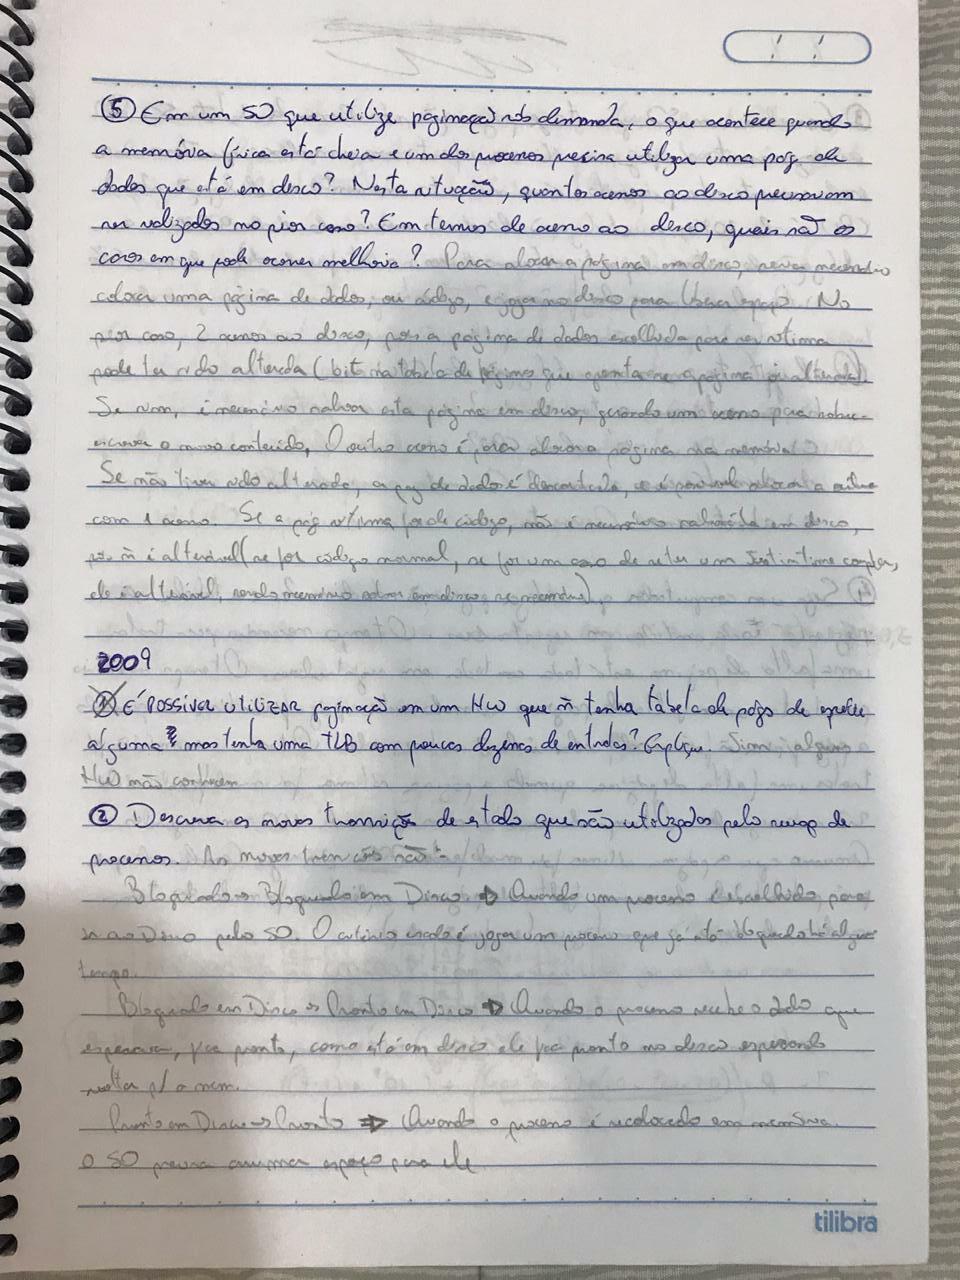 ⑤ Em um SO que utilize paginação sob demanda, o que acontece quando
a memória física está cheia e um dos processos precisa utilizar uma pág. de
dados que está em disco? Nesta situação, quantos acessos ao disco precisavam
ser realizados no pior caso? Em termos de acesso ao disco, quais são os
casos em que pode ocorrer melhoria? Para alocar a página em disco, seria necessário
colocar uma página de dados, ou código, e jogar no disco para liberar espaço. No
pior caso, 2 acessos ao disco, pois a página de dados escolhida para ser vítima
pode ter sido alterada (bit na tabela de páginas que a página foi alterada).
Se sim, é necessário salvar esta página em disco, um acesso para
escrever o novo conteúdo. O outro acesso é para alocar a página na memória
Se não tiver sido alterada, a pag de dados é descartada, e é possível alocar a
com 1 acesso. Se a pág vítima for de código, não é necessário em disco,
é alterável (se for código normal, se for um caso de ter um Just in time
ele é alterável, sendo necessário salvar em disco se necessário)
2009
① É POSSÍVEL UTILIZAR paginação em um HW que ñ tenha tabela de págs de espécie
alguma mas tenha uma TLB com poucas dezenas de entradas? Explique. Sim, alguns
HW não conhecem
② Descreva as novas transições de estado que são utilizadas pelo swap de
processos. As novas transições são:
Bloqueado → Bloqueado em Disco ⇒ Quando um processo é escolhido para
ir ao Disco pelo SO. O critério usado é jogar um processo que já está bloqueado há algum
tempo.
Bloqueado em Disco → Pronto em Disco ⇒ Quando o processo recebe o dado que
esperava, fica pronto, como está em disco ele fica pronto no disco esperando
voltar p/ a mem.
Pronto em Disco → Pronto ⇒ Quando o processo é recolocado em memória.
O SO precisa arrumar espaço para ele
tilibra